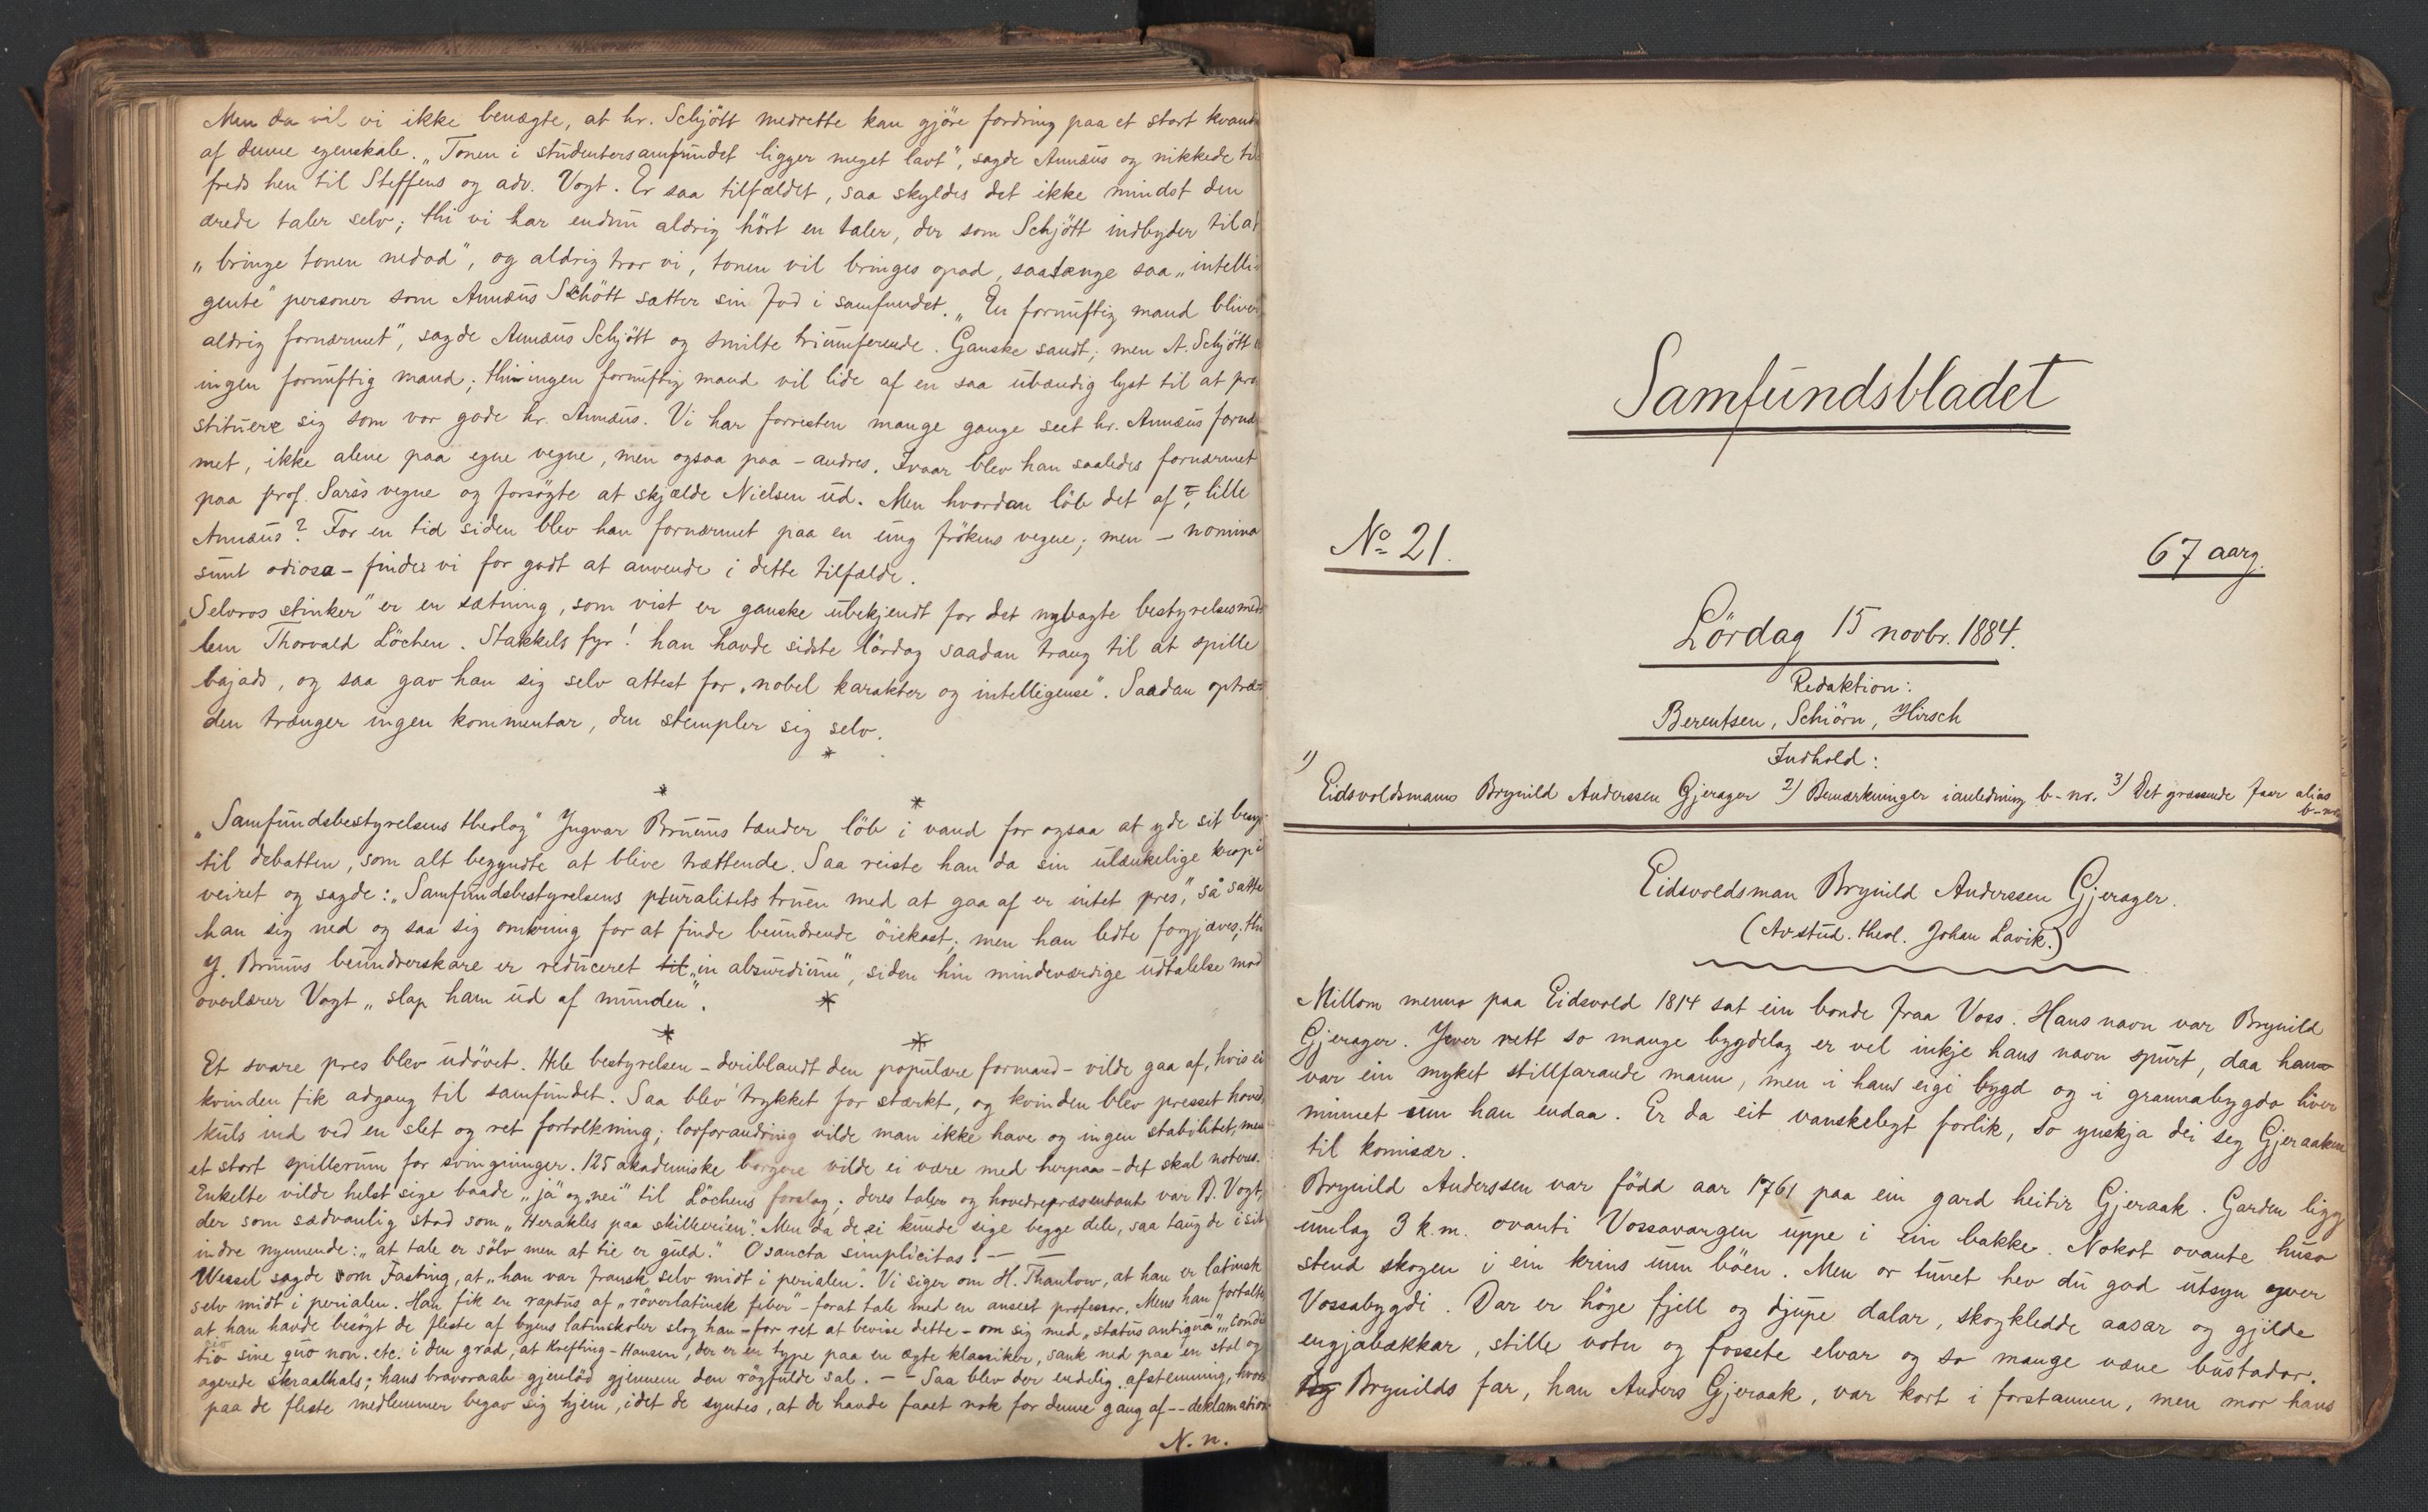 Men da vil vi ikke benægte, at hr. Schjött medrette kan gjöre fordring paa et stort kvant
af denne egenskab. „Tonen i studentersamfundet ligger meget lavt", sagde Annæus og nikkede til
freds hen til Steffens og adv. Vogt. Er saa tilfældet, saa skyldes det ikke mindst den
ærede taler selv; thi vi har endnu aldrig hört en taler, der som Schjött indbyder til at
„bringe tonen nedad", og aldrig tror vi, tonen vil bringes opad, saalænge saa „intelli
gente" personer som Annæus Schött sætter sin fod i samfundet. „En fornuftig mand bliver
aldrig fornærmet", sagde Annæus Schjött og smilte triumferende. Ganske sandt; men A. Schjött
ingen fornuftig mand; thi ingen fornuftig mand vil lide af en saa ubændig lyst til at pro
stituere sig som vor gode hr. Annæus. Vi har forresten mange gange seet hr. Annæus fornær
met, ikke alene paa egne vegne, men ogsaa paa - andres. Ivaar blev han saaledes fornærmet
paa prof. Sars's vegne og forsøgte at skjælde Nielsen ud. Men hvordan löb det af, lille
Annæus? For en tid siden blev han fornærmet paa en ung frökens vegne; men - nomina
sunt odiosa - finder vi for godt at anvende i dette tilfælde.
„Selvros stinker" er en sætning, som vist er ganske ubekjendt for det nybagte bestyrelsesmed
lem Thorvald Löchen. Stakkels fyr! han havde sidste lördag saadan trang til at spille
bajads, og saa gav han sig selv attest for „nobel karakter og intelligense". Saadan optræ-
den trænger ingen kommentar, den stempler sig selv.
*
* *
„Samfundsbestyrelsens theolog" Yngvar Bruuns tænder löb i vand for ogsaa at yde sit
til debatten, som alt begyndte at blive trættende. Saa reiste han da sin ulænkelige krop i
veiret og sagde: „Samfundsbestyrelsens pluralitets truen med at gaa af er intet pres", så satte
han sig ned og saa sig omkring for at finde beundrende öiekast; men han ledte forgjæves; thi
Y. Bruuns beundrerskare er reduceret til „in absurdium", siden hin mindeværdige udtalelse mod
overlærer Vogt „slap ham ud af munden".
*
* *
Et svare pres blev udövet. Hele bestyrelsen - deriblandt den populære formand - vilde gaa af, hvis ei
kvinden fik adgang til samfundet. Saa blev trykket for stærkt, og kvinden blev presset hoved
kuls ind ved en slet og ret fortolkning; lovforandring vilde man ikke have og ingen stabilitet, men
et stort spillerum for svingninger. 125 akademiske borgere vilde ei være med herpaa - det skal noteres.
Enkelte vilde helst sige baade „ja" og „nei" til Löchens forslag; deres taler og hovedrepræsentant var B. Vogt,
der som sædvanlig stod som „Herakles paa skilleveien". Men da de ei kunde sige begge dele, saa taug de i sit
indre nynnende: „at tale er sölv men at tie er guld." O sancta simplicitas! — —
Wessel sagde om Fasting, at „han var fransk selv midt i perialen". Vi siger om H. Thaulow, at han er latinsk
selv midt i perialen. Han fik en raptus af „röverlatinsk feber" - forat tale med en anseet professor. Mens han fortalte
at han havde besögt de fleste af byens latinskoler slog han - for ret at bevise dette - om sig med „status antiqua", „condi
tio sine quo non. etc. i den grad, at Krefting-Hansen, der er en type paa en ægte klassiker, sank ned paa en stol og
agerede skraalhals; hans bravoraab gjenlöd gjennem den rögfulde sal. — - Saa blev der endelig afstemning, hvor
paa de fleste medlemmer begav sig hjem, idet de syntes, at de havde faaet nok for denne gang af -- deklamation
N. n.
Samfundsbladet
No 21.
67 aarg.
Lördag 15 novbr. 1884.
Redaktion:
Berentsen, Schiörn, Hirsch
Indhold:
1) Eidsvoldsmann Brynild Anderssen Gjerager 2) Bemærkninger i anledning b-nr. 3) Det græssende faar alias
b-nr.
Eidsvoldsman Brynild Anderssen Gjerager.
(Av stud. theol. Johan Lavik.)
Millom menno paa Eidsvold 1814 sat ein bonde fraa Voss. Hans navn var Brynild
Gjerager. Yver rett so mange bygdelag er vel inkje hans navn spurt, daa han
var ein myket stillfarande mann, men i hans eigi bygd og i grannabygdo liver
minnet um han endaa. Er da eit vanskelegt forlik, so ynskja dei seg Gjeraaken
til komisær.
Brynild Anderssen var född aar 1761 paa ein gard heitir Gjeraak. Garden ligg
umlag 3 k.m. ovanti Vossavangen uppe i ein bakke. Nokot ovante huso
stend skogen i ein krins um böen. Men or tunet hev du god utsyn yver
Vossabygdi. Dar er höge fjell og djupe dalar, skogkledde aasar og gjilde
engjabakkar, stille votn og fossete elvar og so mange væne bustadar.
Brynilds far, han Anders Gjeraak, var kort i forstannen, men mor hans